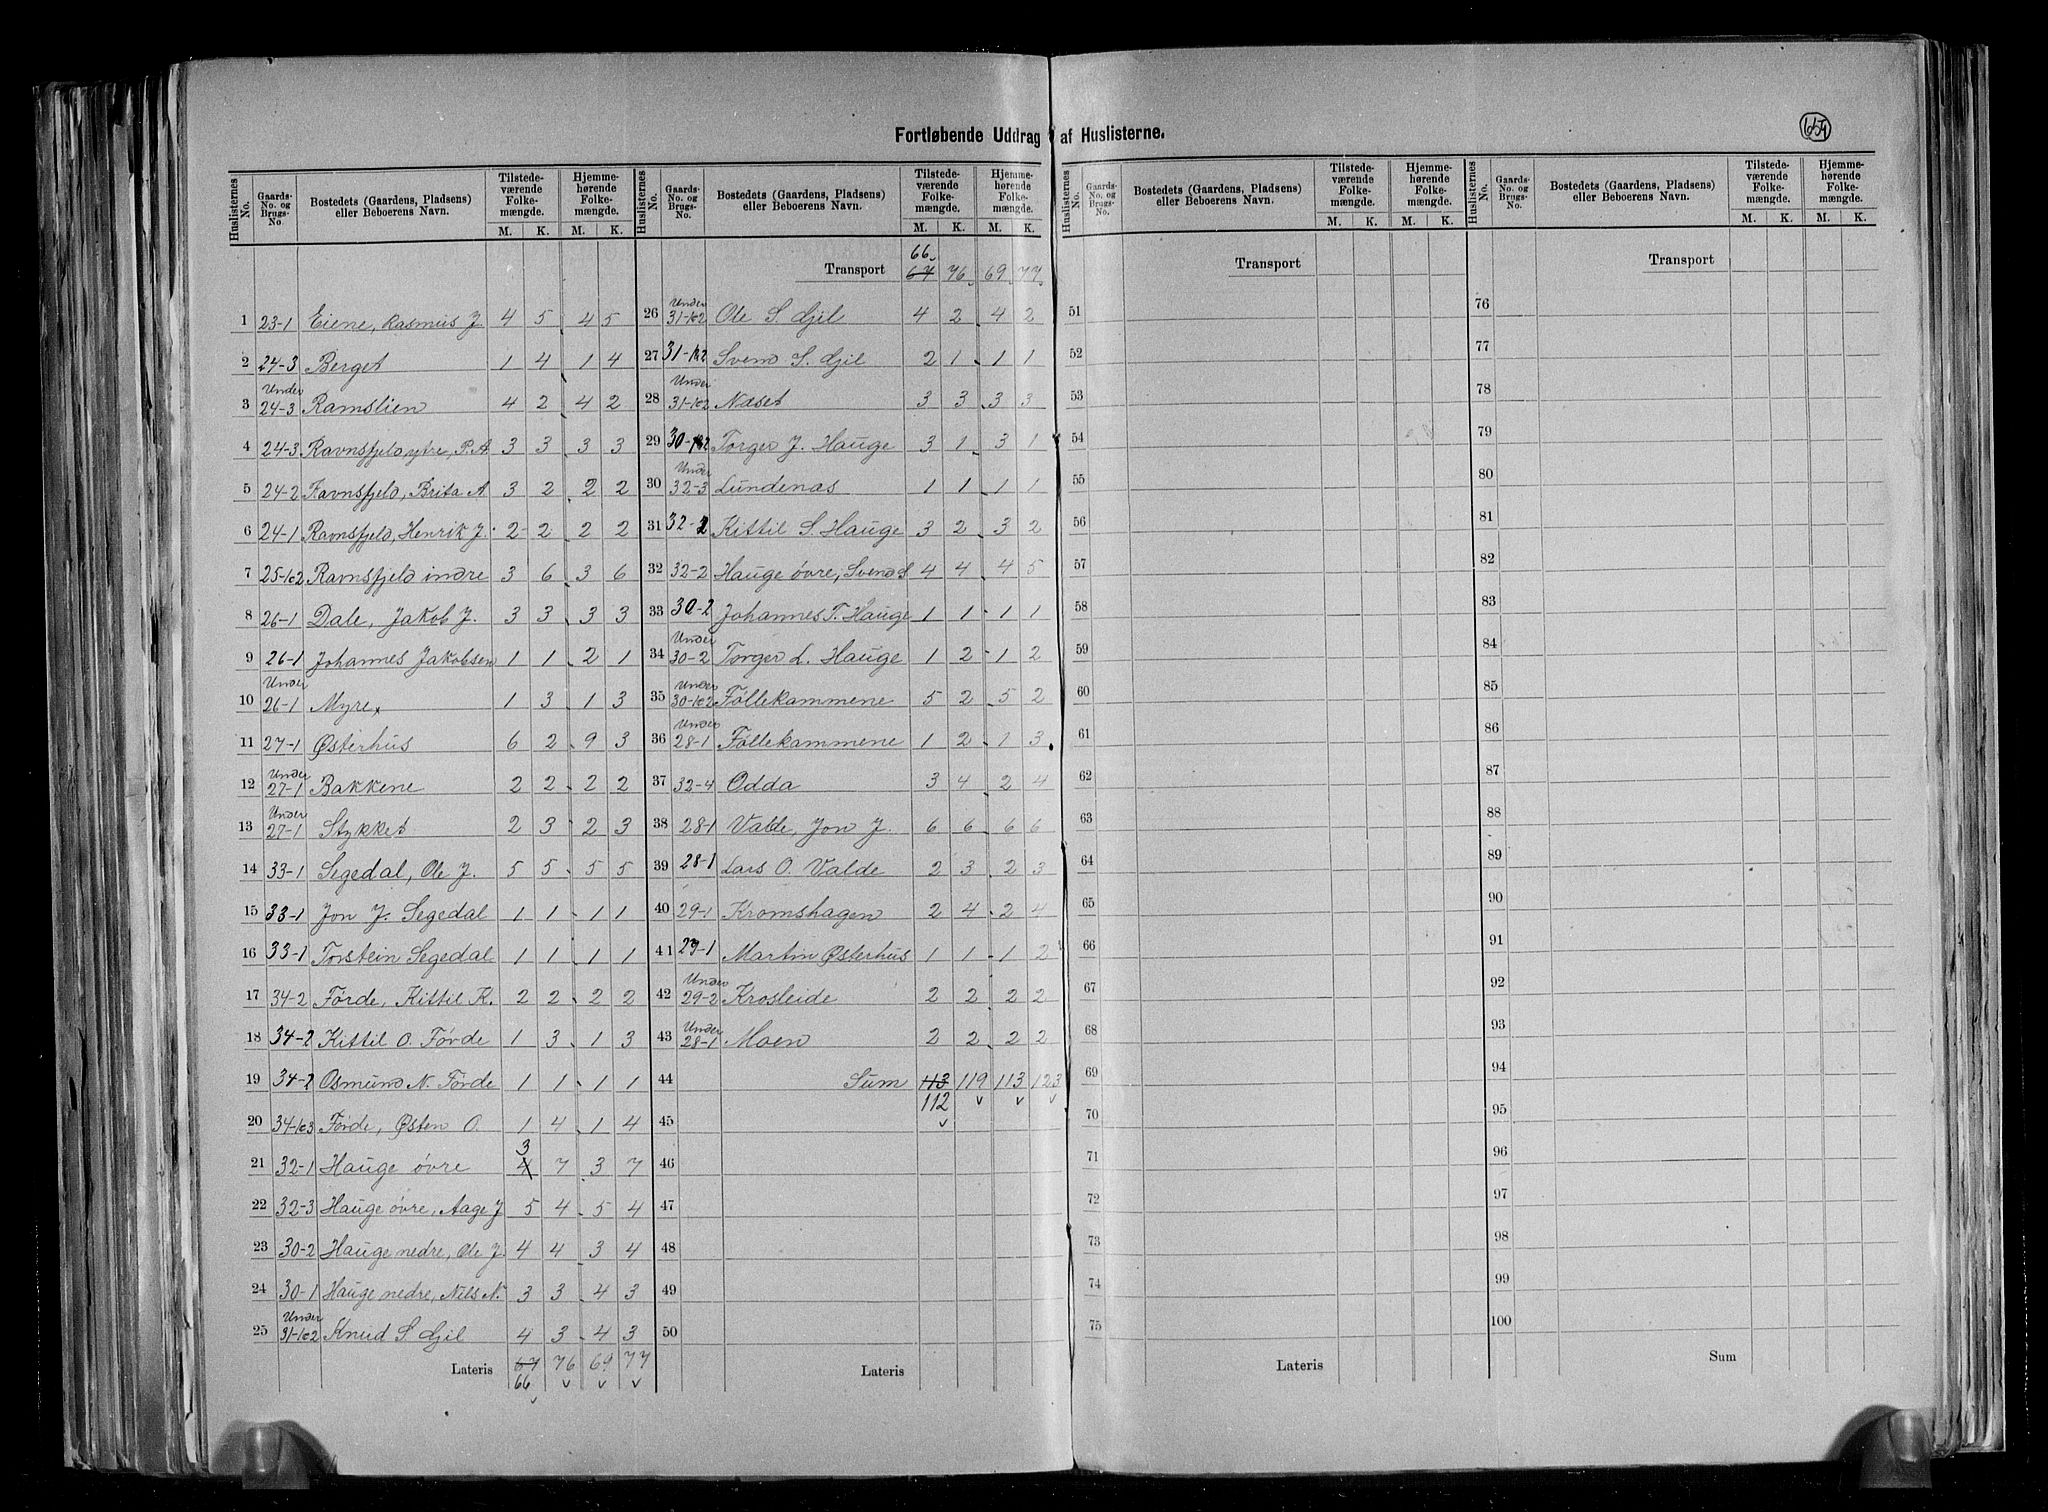 654
Fortløbende Uddrag af Huslisterne.
Huslisternes No. | Gaards-No. og Brugs-No. | Bostedets (Gaardens, Pladsens) eller Beboerens Navn. | Tilstedeværende Folkemængde. M. K. | Hjemmehørende Folkemængde. M. K.
1 23-1 Eiene, Rasmus J. 4 5 4 5
2 24-3 Berget 1 4 1 4
3 Under 24-3 Ramslien 4 2 4 2
4 24-3 Ravnsfjeld ytre, P. A 3 3 3 3
5 24-2 Ravnsfjeld, Brita A 3 2 2 2
6 24-1 Ravnsfjeld, Henrik J. 2 2 2 2
7 25-1o2 Ravnsfjeld indre 3 6 3 6
8 26-1 Dale, Jakob J. 3 3 3 3
9 26-1 Johannes Jakobsen 1 1 2 1
10 Under 26-1 Myre 1 3 1 3
11 27-1 Østerhus 6 2 9 3
12 Under 27-1 Bakkene 2 2 2 2
13 Under 27-1 Stykket 2 3 2 3
14 33-1 Segedal, Ole J. 5 5 5 5
15 33-1 Jon J. Segedal 1 1 1 1
16 33-1 Torstein Segedal 1 1 1 1
17 34-2 Førde, Kittil K. 2 2 2 2
18 34-2 Kittil O. Førde 1 3 1 3
19 34-2 Osmund N. Førde 1 1 1 1
20 34-1o3 Førde, Østen O. 1 4 1 4
21 32-1 Hauge øvre 4 3 7 3 7
22 32-3 Hauge øvre, Aage J 5 4 5 4
23 30-2 Hauge nedre, Ole J. 4 4 3 4
24 30-1 Hauge nedre, Nils N. 3 3 4 3
25 Under 31-1o2 Knud S Gjil 4 3 4 3
Lateris 67 66 76 69 77
Huslisternes No. | Gaards-No. og Brugs-No. | Bostedets (Gaardens, Pladsens) eller Beboerens Navn. | Tilstedeværende Folkemængde. M. K. | Hjemmehørende Folkemængde. M. K.
Transport 66 67 76 69 77
26 Under 31-1o2 Ole S. Gjil 4 2 4 2
27 31-1o2 Svend S. Gjil 2 1 1 1
28 Under 31-1o2 Næset 3 3 3 3
29 30-1o2 Torger J. Hauge 3 1 3 1
30 Under 32-3 Lundenas 1 1 1 1
31 32-2 Kittil S. Hauge 3 2 3 2
32 32-2 Hauge øvre, Svend S 4 4 4 5
33 30-2 Johannes T. Hauge 1 1 1 1
34 Under 30-2 Torger L. Hauge 1 2 1 2
35 Under 30-1o2 Føllekammene 5 2 5 2
36 Under 28-1 Føllekammene 1 2 1 3
37 32-4 Odda 3 4 2 4
38 28-1 Valle, Jon J. 6 6 6 6
39 28-1 Lars O. Valde 2 3 2 3
40 29-1 Kromshagen 2 4 2 4
41 29-1 Martin Østerhus 1 1 1 2
42 Under 29-2 Krosleide 2 2 2 2
43 Under 28-1 Moen 2 2 2 2
44 Sum 113 112 119 113 123
45
46
47
48
49
50
Lateris
Huslisternes No. | Gaards-No. og Brugs-No. | Bostedets (Gaardens, Pladsens) eller Beboerens Navn. | Tilstedeværende Folkemængde. M. K. | Hjemmehørende Folkemængde. M. K.
Transport
51
52
53
54
55
56
57
58
59
60
61
62
63
64
65
66
67
68
69
70
71
72
73
74
75
Lateris
Huslisternes No. | Gaards-No. og Brugs-No. | Bostedets (Gaardens, Pladsens) eller Beboerens Navn. | Tilstedeværende Folkemængde. M. K. | Hjemmehørende Folkemængde. M. K.
Transport
76
77
78
79
80
81
82
83
84
85
86
87
88
89
90
91
92
93
94
95
96
97
98
99
100
Sum